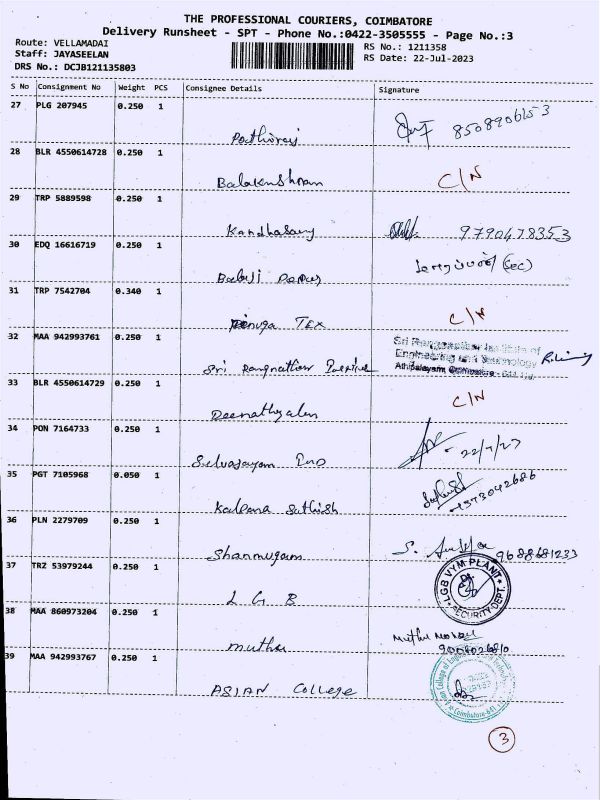 THE PROFESSIONAL COURIERS, COIMBATORE
Delivery Runsheet - SPT - Phone No.:0422-3505555 - Page No.:3
Route: VELLAMADAI
RS No.: 1211358
Staff: JAYASEELAN
RS Date: 22-Jul-2023
DRS No.: DCJB121135803
S No Consignment No Weight PCS Consignee Details Signature
27 PLG 207945 0.250 1
8508906153
28 BLR 4550614728 0.250 1
C/N
29 TRP 5889598 0.250 1
Kandhasamy 9790478353
30 EDQ 16616719 0.250 1
(Sec)
31 TRP 7542704 0.340 1
TEX C/N
32 MAA 942993761 0.250 1
Sri
Engineering and Technology
33 BLR 4550614729 0.250 1
C/N
Deenathyalan
34 PON 7164733 0.250 1
35 PGT 7105968 0.050 1
Kalpana Sathish
36 PLN 2279709 0.250 1
Shanmugam 9688681233
37 TRZ 53979244 0.250 1
LGB VYM PLANT
SECURITY DEPT.
L G B
38 MAA 860973204 0.250 1
Muthu
39 MAA 942993767 0.250 1
ASIAN College
3